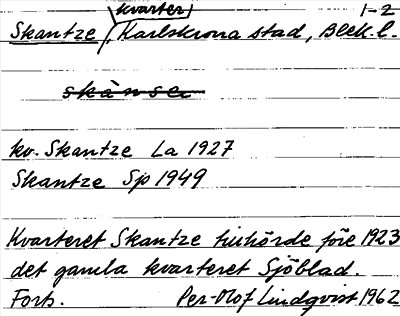 kvarter 1-2
Skantze, Karlskrona stad, Blek.l.
skànser
kv. Skantze La 1927
Skantze Sp 1949
Kvarteret Skantze tillhörde före 1923
det gamla kvarteret Sjöblad.
Forts. Per-Olof Lindqvist 1962